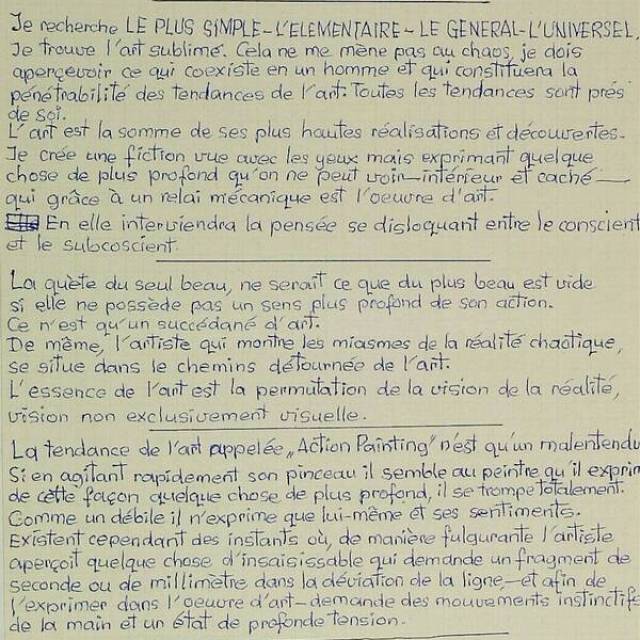 Je recherche LE PLUS SIMPLE - L'ELEMENTAIRE - LE GENERAL - L'UNIVERSEL.
Je trouve l'art sublimé. Cela ne me mène pas au chaos, je dois
aperçevoir ce qui coexiste en un homme et qui constituera la
pénétrabilité des tendances de l'art. Toutes les tendances sont près
de soi.
L'art est la somme de ses plus hautes réalisations et découvertes.
Je crée une fiction vue avec les yeux mais exprimant quelque
chose de plus profond qu'on ne peut voir - intérieur et caché —
qui grâce à un relai mécanique est l'oeuvre d'art.
En elle interviendra la pensée se disloquant entre le conscient
et le subcoscient.
La quète du seul beau, ne serait ce que du plus beau est vide
si elle ne possède pas un sens plus profond de son action.
Ce n'est qu'un succédané d'art.
De même, l'artiste qui montre les miasmes de la réalité chaotique,
se situe dans le chemins détournée de l'art.
L'essence de l'art est la permutation de la vision de la réalité,
vision non exclusivement visuelle.
La tendance de l'art appelée „Action Painting" n'est qu'un malentendu
Si en agitant rapidement son pinceau il semble au peintre qu'il exprim
de cette façon quelque chose de plus profond, il se trompe totalement.
Comme un débile il n'exprime que lui-même et ses sentiments.
Existent cependant des instants où, de manière fulgurante l'artiste
aperçoit quelque chose d'insaisissable qui demande un fragment de
seconde ou de millimètre dans la déviation de la ligne, - et afin de
l'exprimer dans l'oeuvre d'art - demande des mouvements instinctifs
de la main et un état de profonde tension.